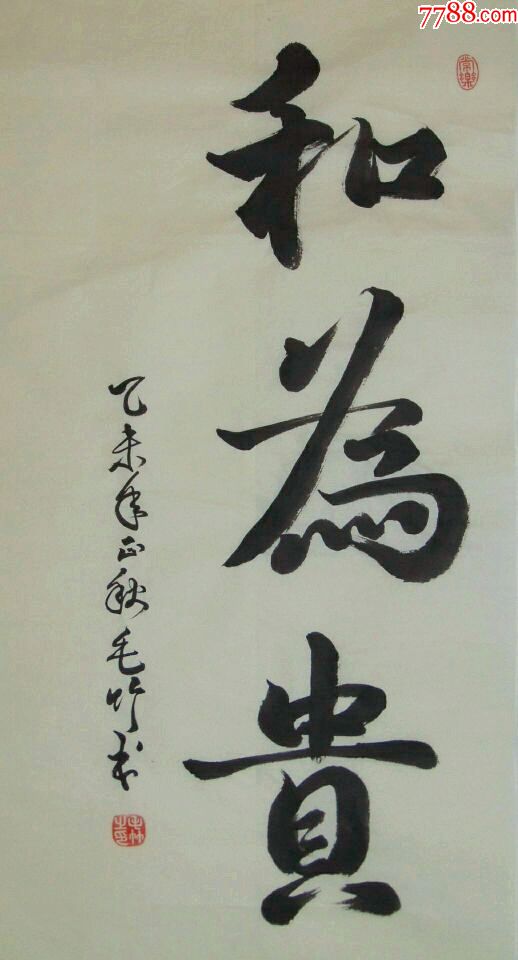 7788.com
常樂
和為貴
乙未年正秋毛竹书